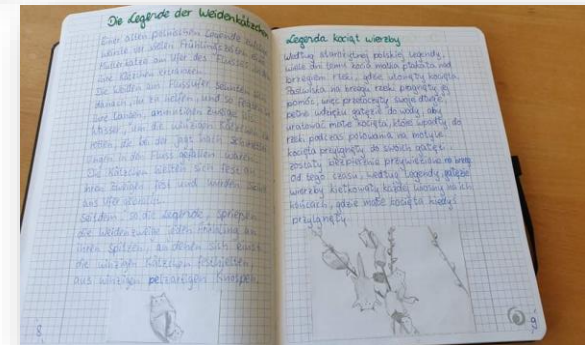 Die Legende der Weidenkätzchen
Einer alten polnischen Legende zufolge
weinte vor vielen Frühlingszeiten eine
Mutterkatze am Ufer des Flusses, in dem
ihre Kätzchen ertranken.
Die Weiden am Flussufer sehnten sich
danach, ihr zu helfen, und so
ihre langen, anmutigen Zweige ins
Wasser, um die winzigen Kätzchen zu
retten, die bei der Jagd nach Schmetter-
lingen in den Fluss gefallen waren.
Die Kätzchen hielten sich fest an
ihren Zweigen fest und wurden sicher
ans Ufer
Seitdem, so die Legende, sprießen
die Weidenzweige jeden Frühling an
ihren Spitzen, an denen sich einst
die winzigen Kätzchen festhielten,
aus winzigen pelzartigen Knospen.
8
Legenda kociąt wierzby
Według starożytnej polskiej legendy,
wiele dni temu kocia matka płakała nad
brzegiem rzeki, gdzie utonęły kocięta.
na brzegu rzeki pragnęły jej
pomóc, więc przetoczyły swoje długie,
pełne wdzięku gałęzie do wody, aby
uratować małe kocięta, które wpadły do
rzeki podczas polowania na motyle.
Kocięta przylgnęły do swoich gałęzi
zostały bezpiecznie na brzeg
Od tego czasu, według legendy, gałęzie
wierzby kiełkowały każdej wiosny na ich
końcach, gdzie małe kocięta kiedyś
przylgnęły
9